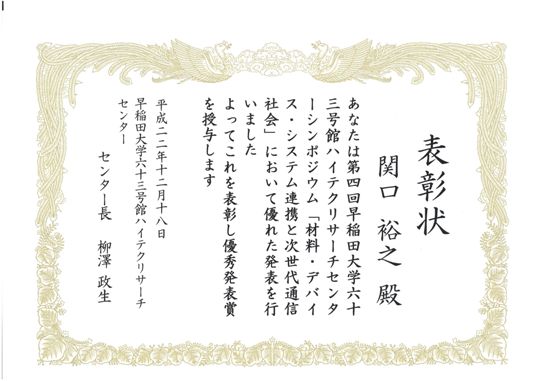 表彰状
関口 裕之 殿
あなたは第四回早稲田大学六十
三号館ハイテクリサーチセンタ
ーシンポジウム「材料・デバイ
ス・システム連携と次世代通信
社会」において優れた発表を行
いました
よってこれを表彰し優秀発表賞
を授与します
平成二二年十二月十八日
早稲田大学六十三号館ハイテクリサーチ
センター
センター長 柳澤 政生